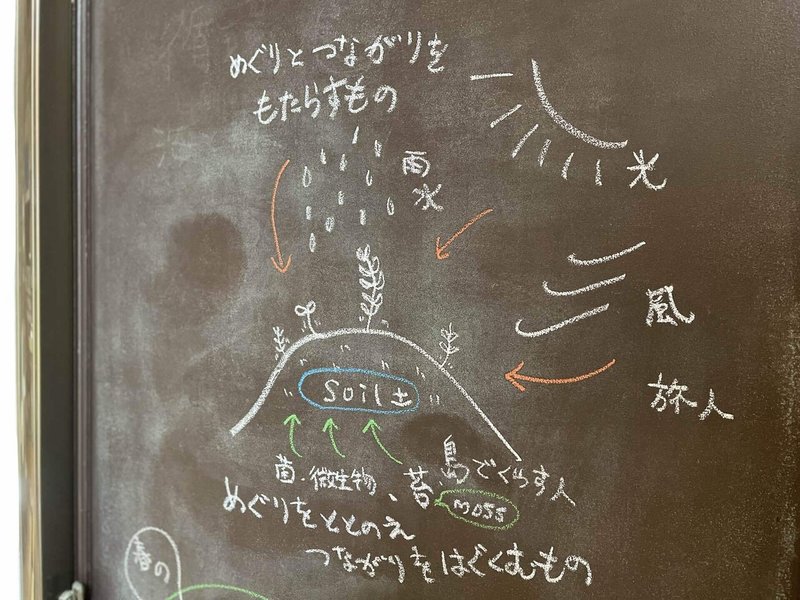 めぐりとつながりを
もたらすもの
雨
水
光
風
旅人
soil 土
菌・微生物、苔 島でくらす人
moss
めぐりをととのえ
つながりをはぐくむもの
春の